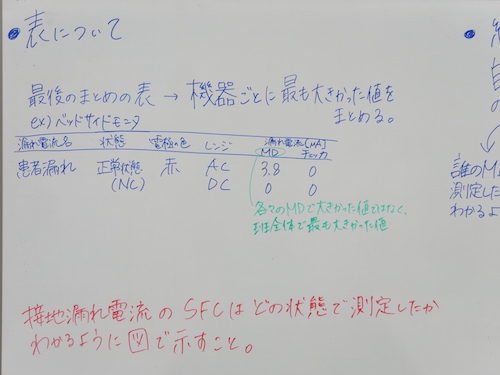 表について
最後のまとめの表 → 機器ごとに最も大きかった値を
まとめる。
ex) ベッドサイドモニタ
漏れ電流名 状態 電極の色 レンジ 漏れ電流[μA]
MD チェッカ
患者漏れ 正常状態 赤 AC 3.8 0
(NC) DC 0 0
各々のMDで大きかった値ではなく、
班全体で最も大きかった値
接地漏れ電流のSFCはどの状態で測定したか
わかるように図で示すこと。
誰のM
測定した
わかるよ